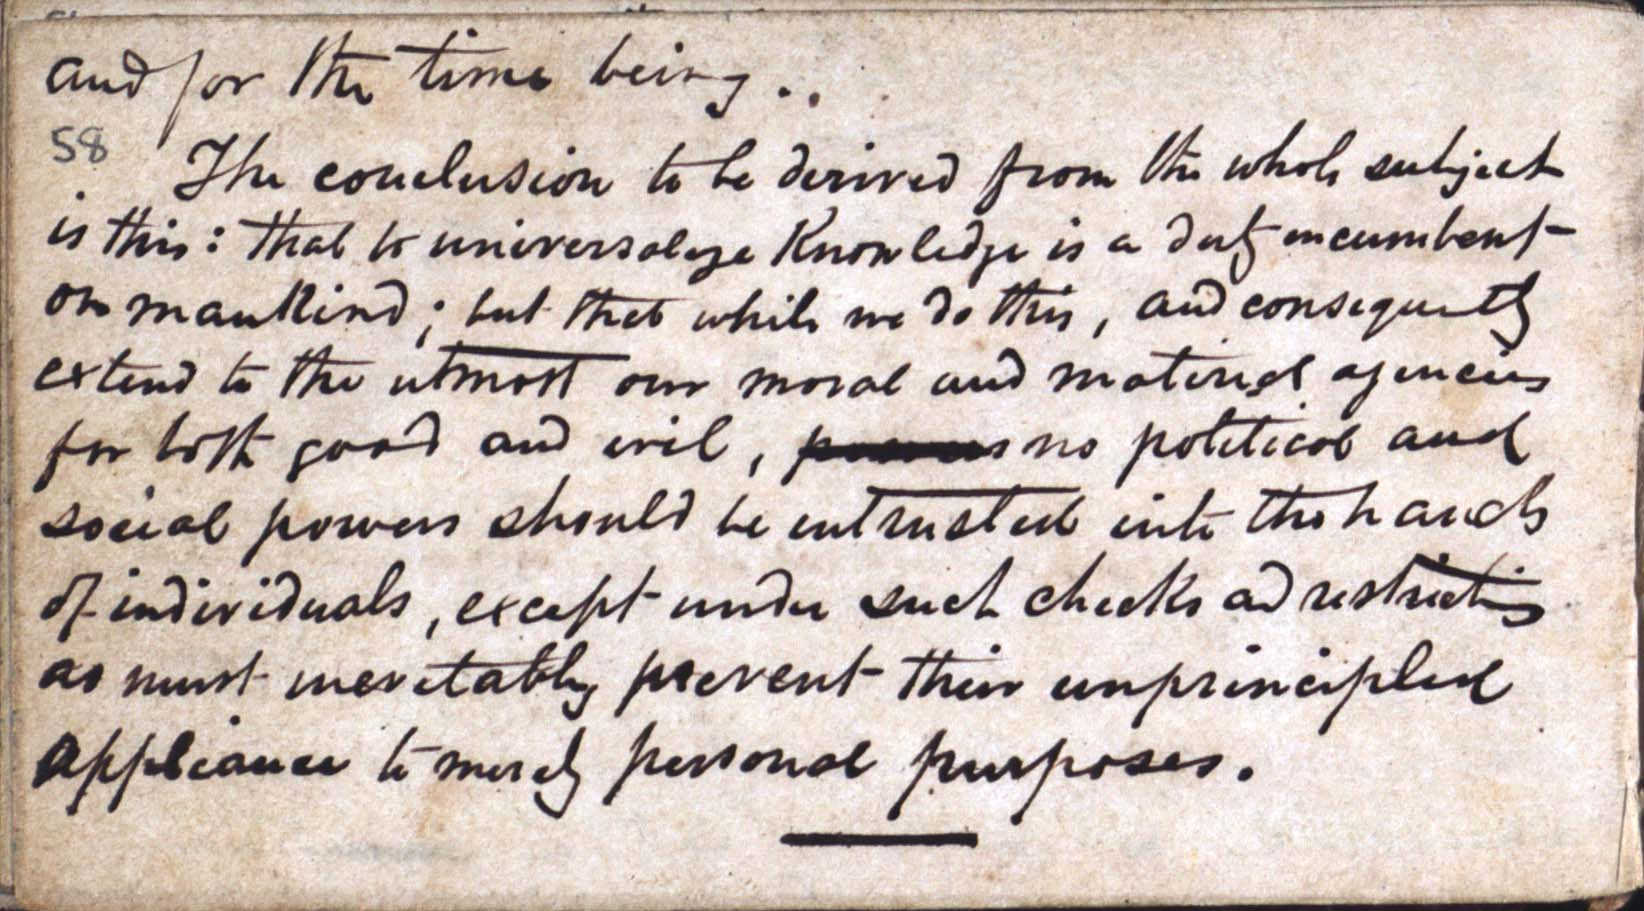 and for the time being..
58
The conclusion to be derived from the whole subject
is this: that to universalize Knowledge is a duty incumbent
on mankind; but that while we do this, and consequently
extend to the utmost our moral and material agencies
for both good and evil, no political and
social powers should be entrusted into the hands
of individuals, except under such checks ad restrictions
as must inevitably prevent their unprincipled
appliance to merely personal purposes.